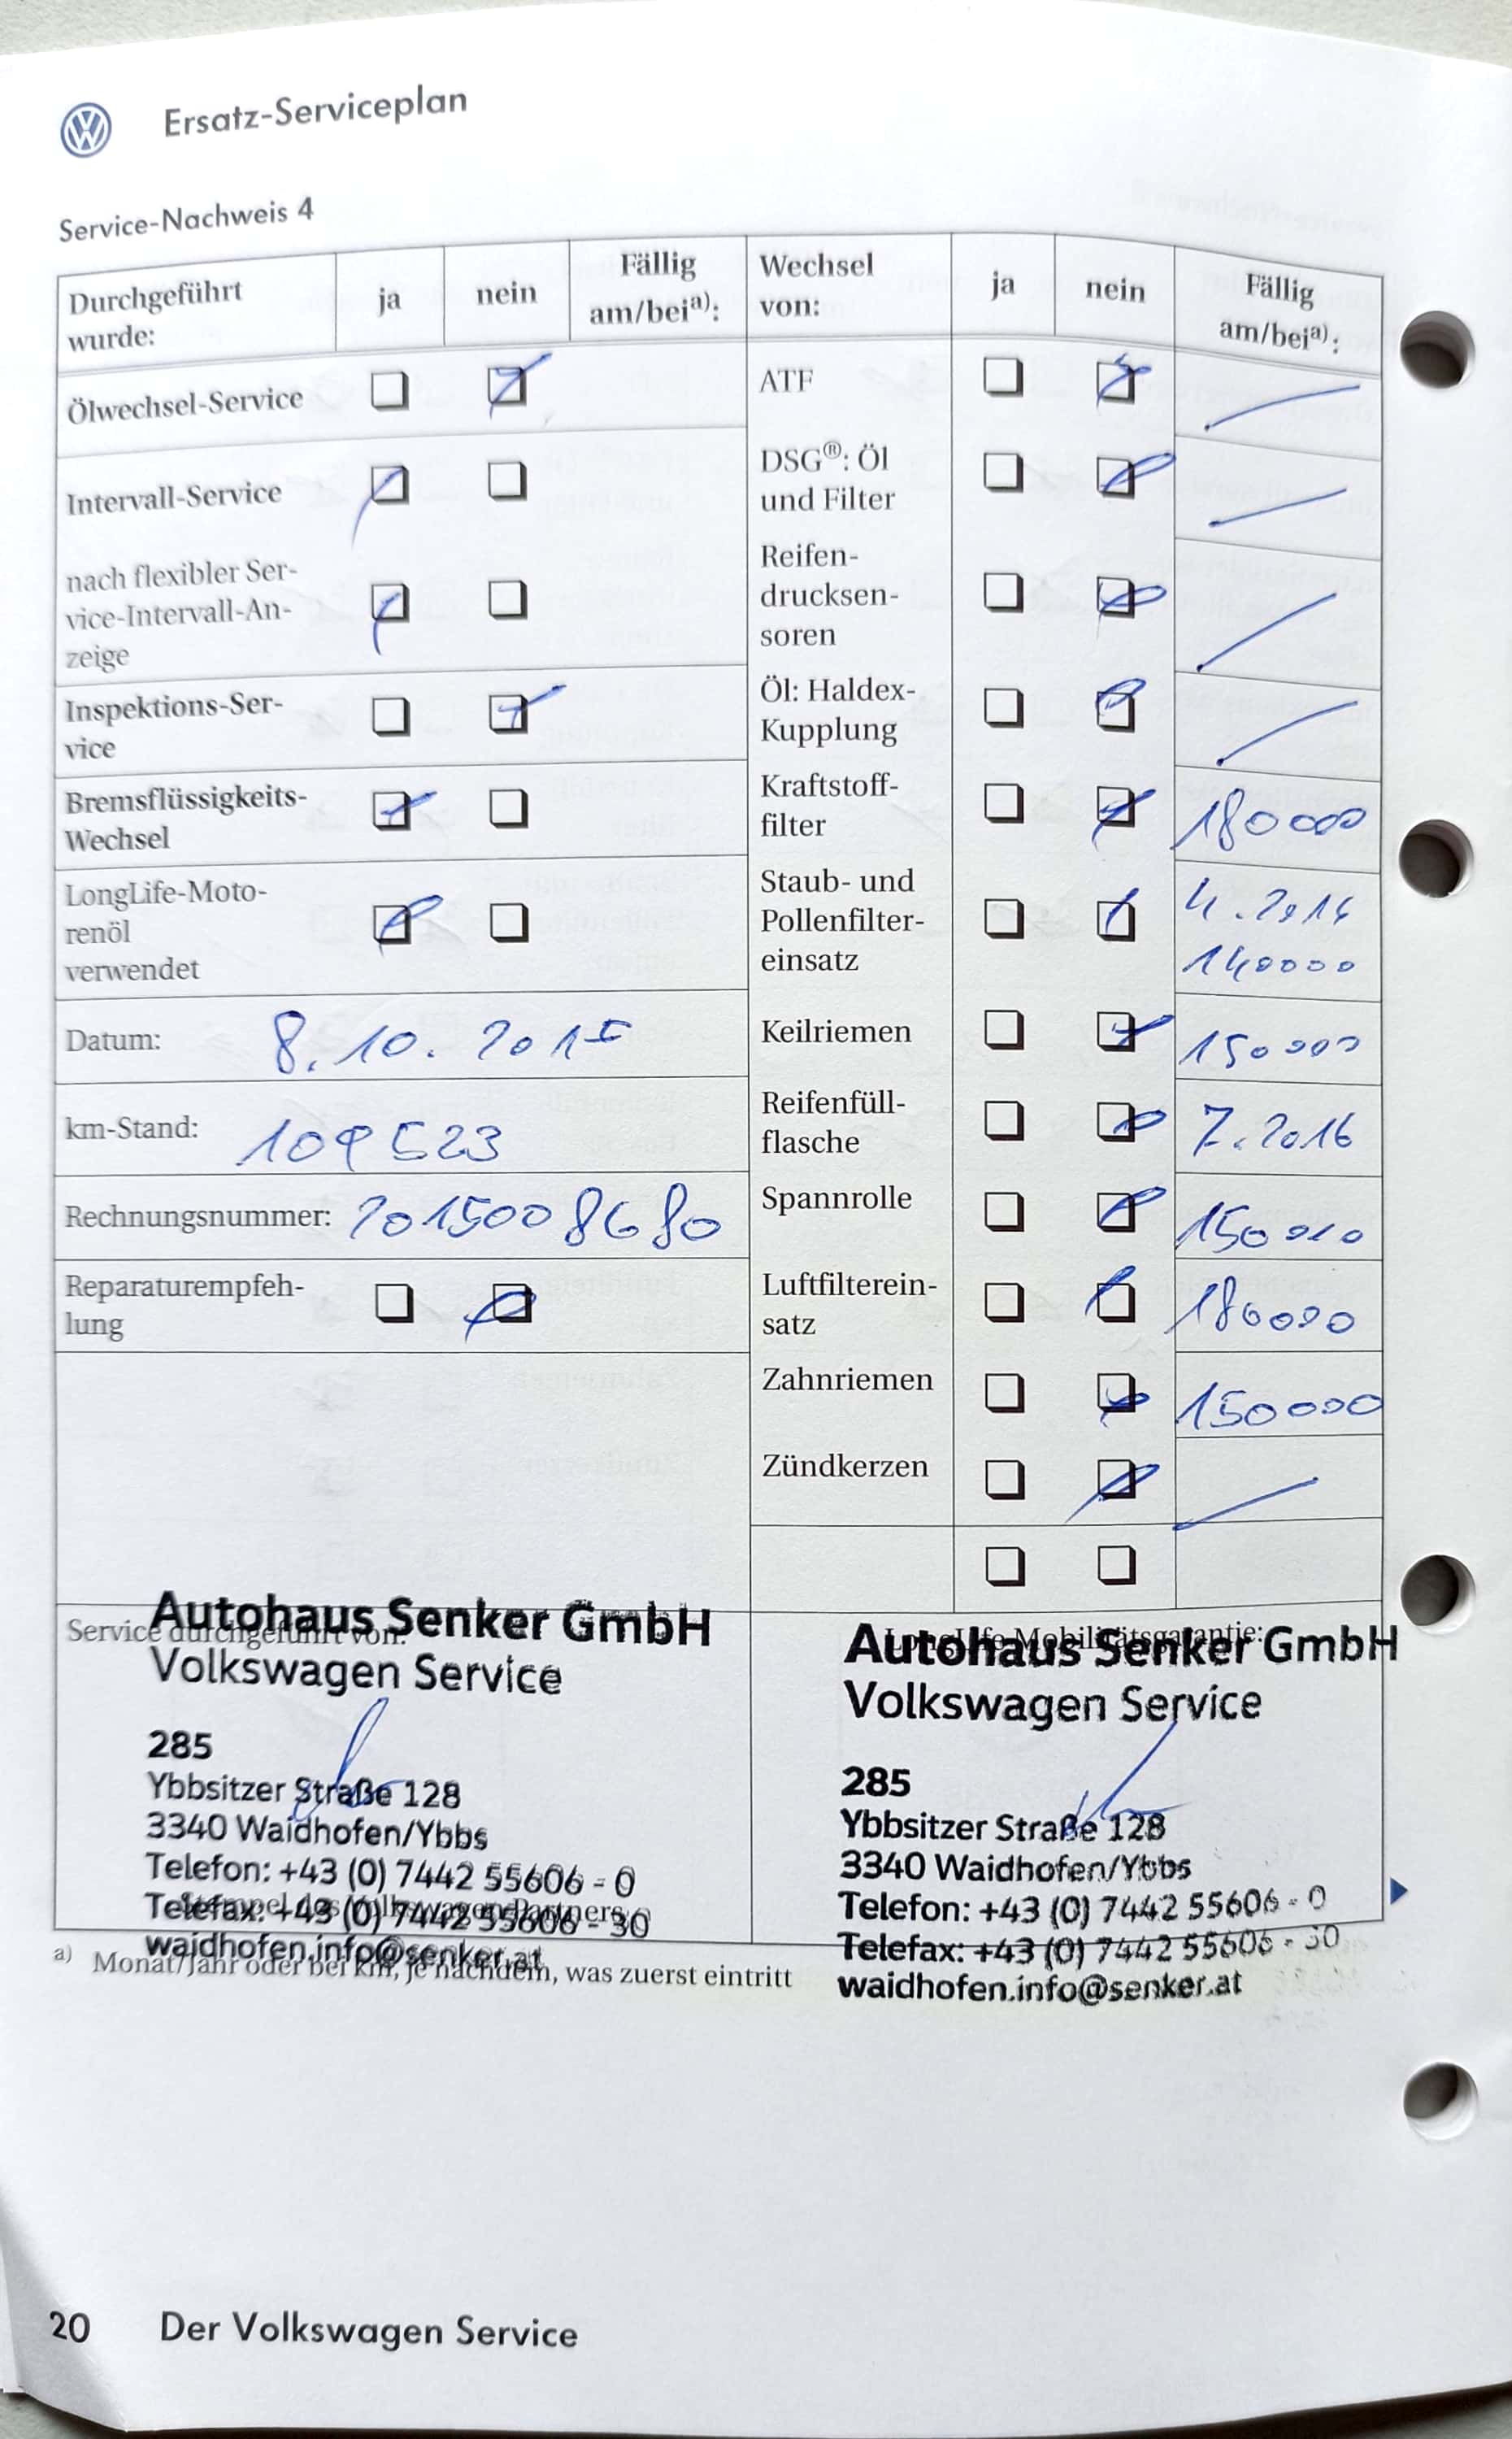 Ersatz-Serviceplan
Service-Nachweis 4
Durchgeführt
wurde:
ja
nein
Fällig
am/bei a):
Ölwechsel-Service
Intervall-Service
nach flexibler Ser-
vice-Intervall-An-
zeige
Inspektions-Ser-
vice
Bremsflüssigkeits-
Wechsel
LongLife-Moto-
renöl
verwendet
Datum: 8.10.2015
km-Stand: 109523
Rechnungsnummer: 2015008680
Reparaturempfeh-
lung
Wechsel
von:
ja
nein
Fällig
am/bei a):
ATF
DSG®: Öl
und Filter
Reifen-
drucksen-
soren
Öl: Haldex-
Kupplung
Kraftstoff-
filter
180000
Staub- und
Pollenfilter-
einsatz
4.2016
140000
Keilriemen
150000
Reifenfüll-
flasche
7.2016
Spannrolle
150000
Luftfilterein-
satz
180000
Zahnriemen
150000
Zündkerzen
Service durchgeführt von:
Autohaus Senker GmbH
Volkswagen Service
285
Ybbsitzer Straße 128
3340 Waidhofen/Ybbs
Telefon: +43 (0) 7442 55606 - 0
Telefax: +43 (0) 7442 55606 - 30
waidhofen.info@senker.at
Stempel des Volkswagen Partners
LongLife Mobilitätsgarantie:
Autohaus Senker GmbH
Volkswagen Service
285
Ybbsitzer Straße 128
3340 Waidhofen/Ybbs
Telefon: +43 (0) 7442 55606 - 0
Telefax: +43 (0) 7442 55606 - 30
waidhofen.info@senker.at
a) Monat/Jahr oder bei km, je nachdem, was zuerst eintritt
20 Der Volkswagen Service